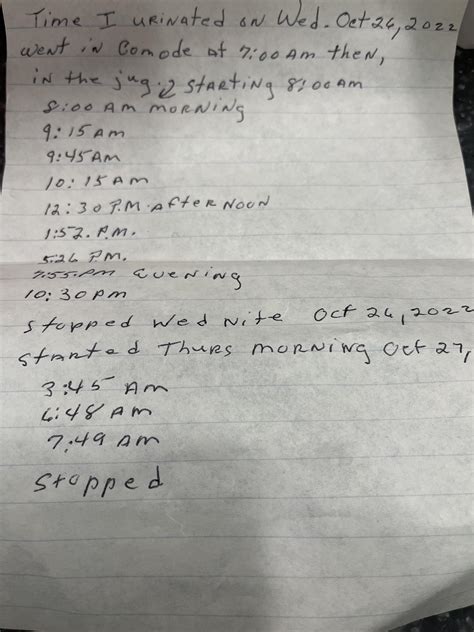 Time I urinated on Wed. Oct 26, 2022
went in Comode at 7:00 Am then,
in the jug. starting 8:00 am
8:00 Am morning
9:15 Am
9:45 Am
10:15 Am
12:30 P.M. afternoon
1:52. P.M.
5:26 P.M.
7:55 pm evening
10:30 pm
stopped Wed nite Oct 26, 2022
started Thurs morning Oct 27,
3:45 Am
6:48 Am
7:49 Am
Stopped